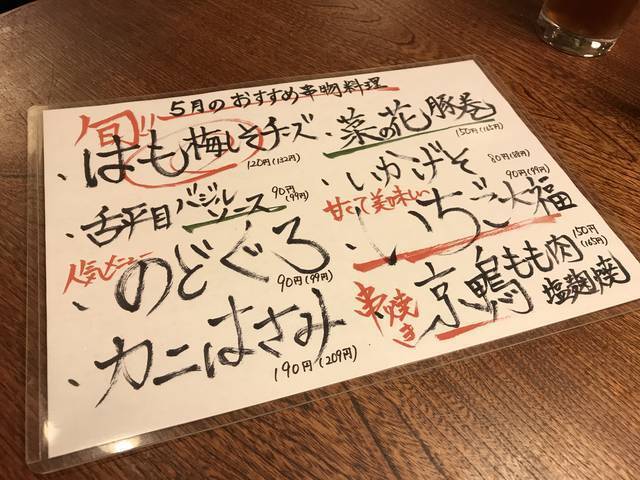 5月のおすすめ串物料理
旬!!
・はも梅しそチーズ
120円(132円)
・舌平目バジルソース
90円(99円)
人気メニュー
・のどぐろ
90円(99円)
・カニはさみ
190円(209円)
・菜の花豚巻
150円(165円)
・いかげそ
80円(88円)
甘くて美味しい
・いちご大福
90円(99円)
串焼き
・京鴨もも肉塩麹焼
150円(165円)